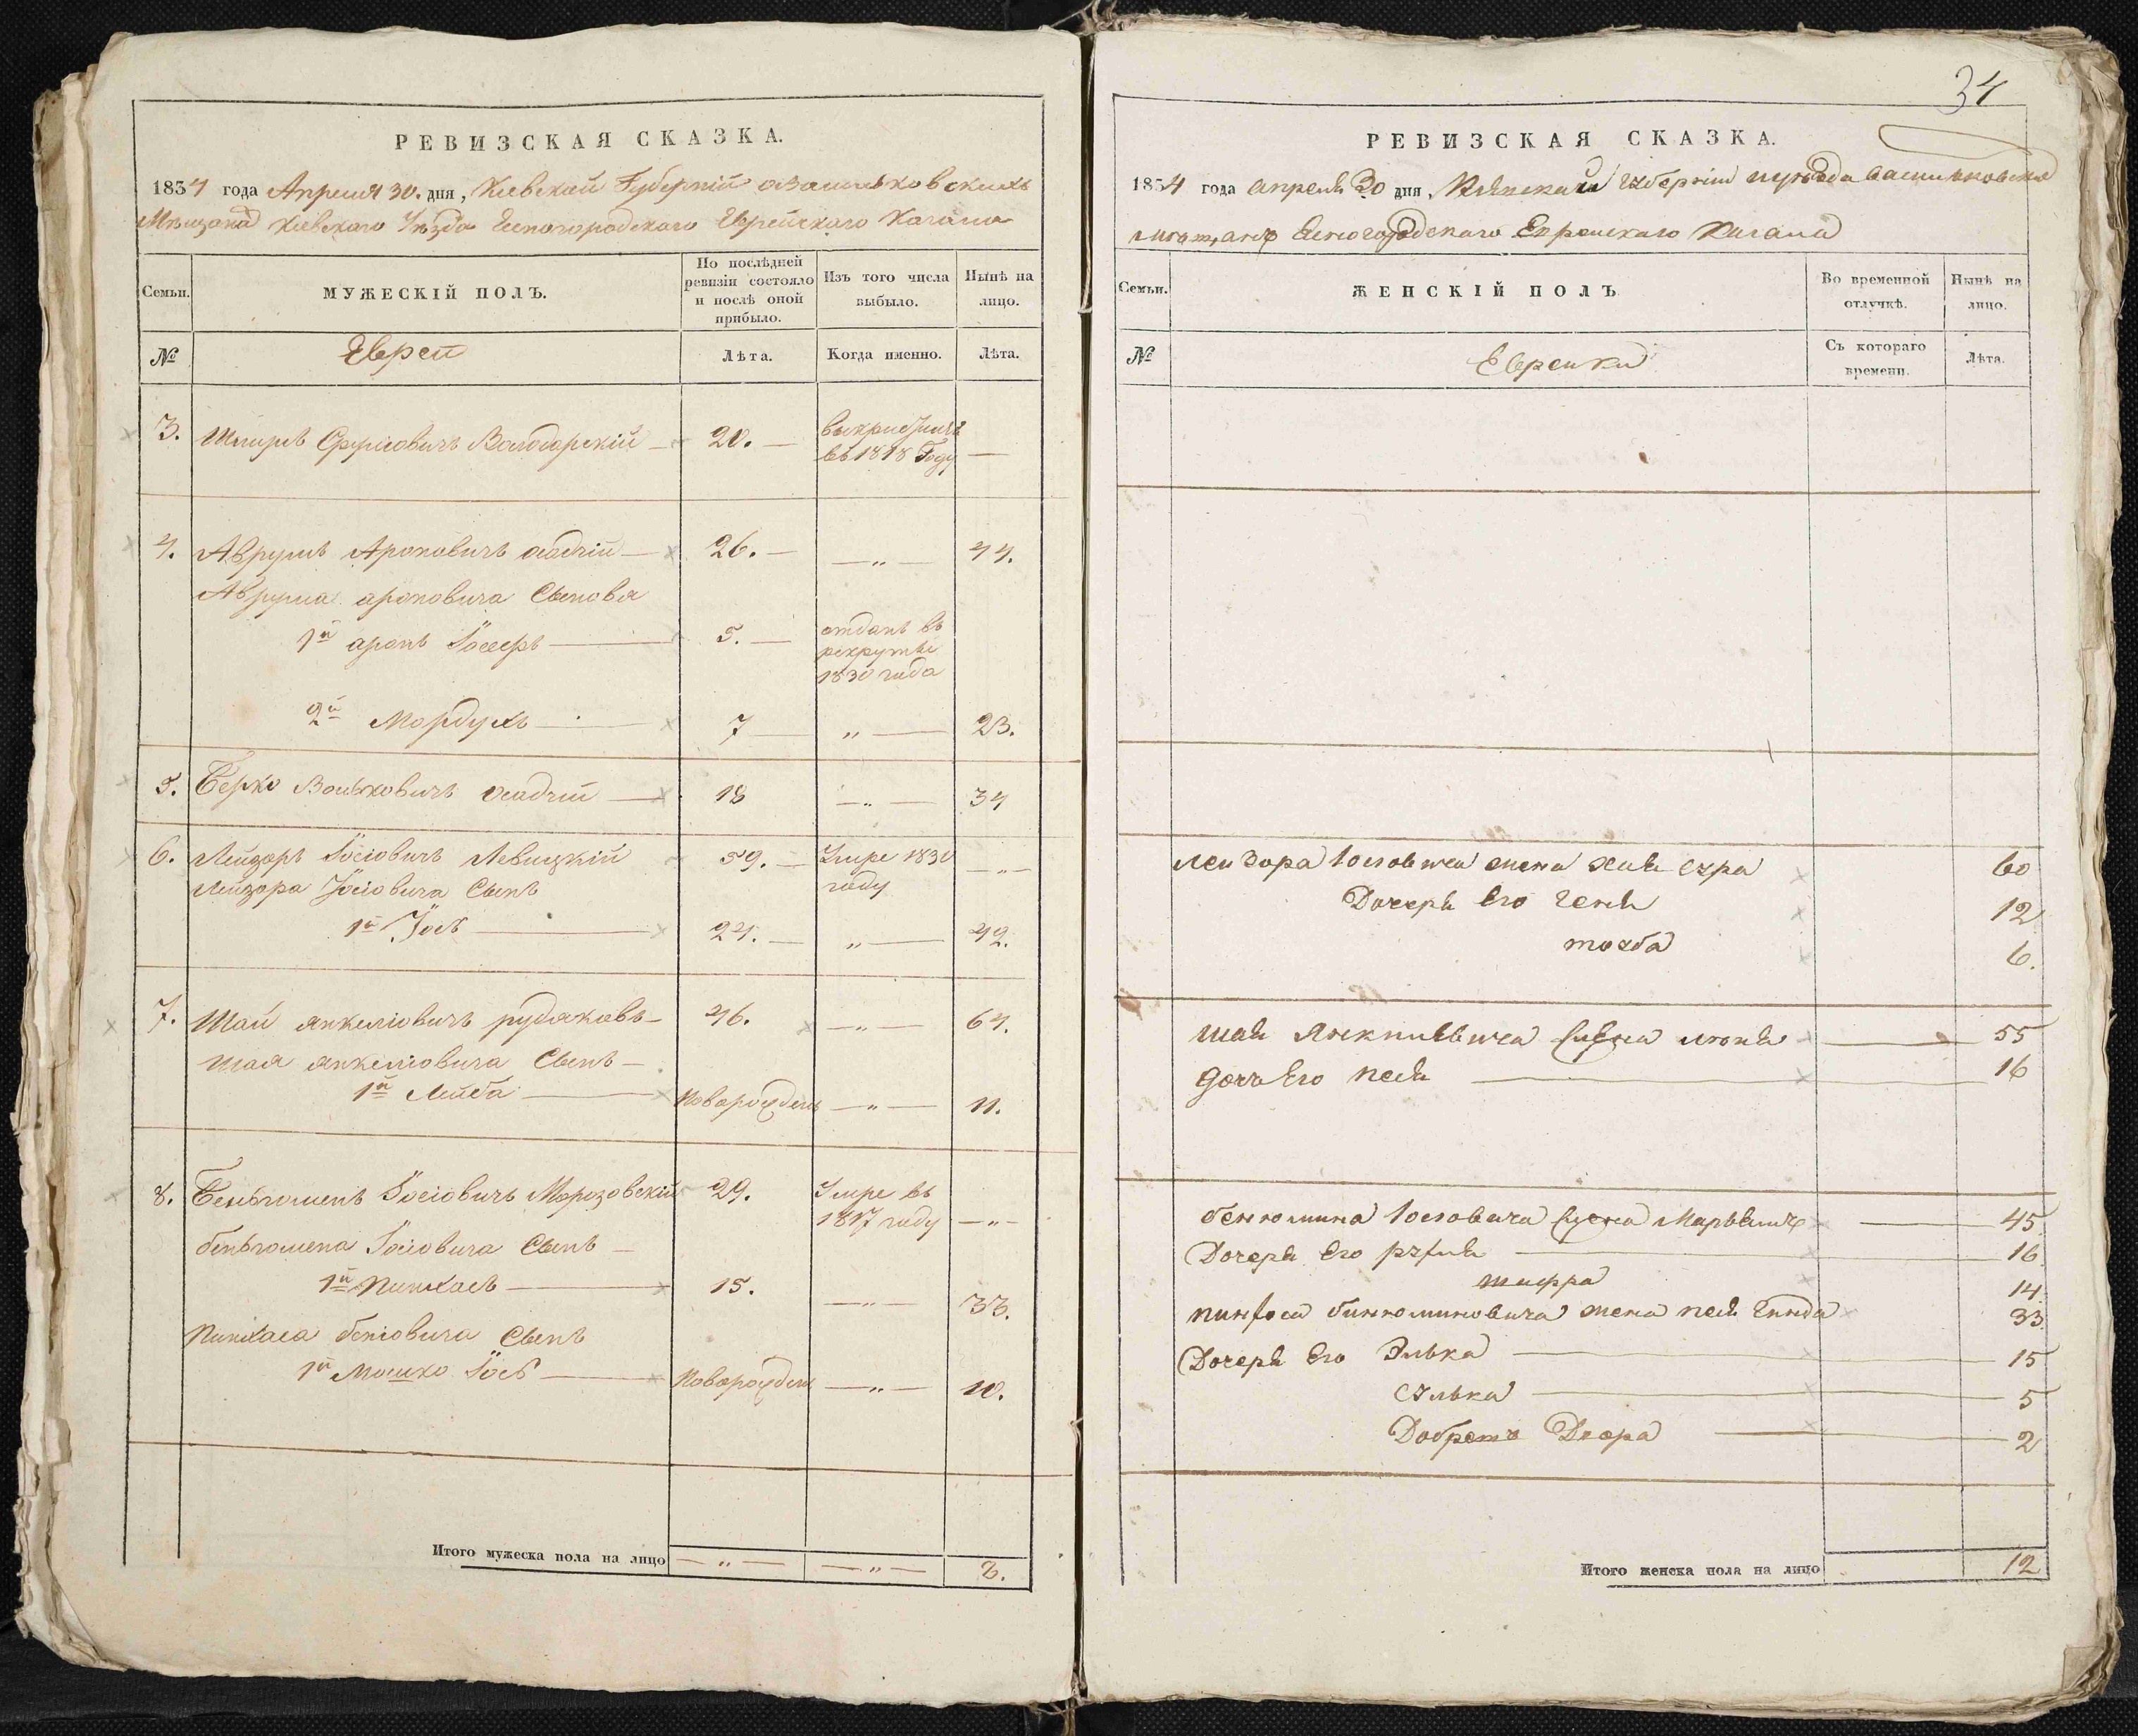 РЕВИЗСКАЯ СКАЗКА.
1834 года Апреля 30. дня, Кіевской Губерніи Васильковскихъ
Мѣщанъ Кіевскаго Уѣзда Ясногородскаго Еврейскаго Кагала
Семьи.
МУЖЕСКІЙ ПОЛЪ.
По послѣдней ревизіи состояло и послѣ оной прибыло.
Изъ того числа выбыло.
Нынѣ на лицо.
№
Евреи
Лѣта.
Когда именно.
Лѣта.
3. Володарскій — 20. —
въ 1818 Году —
4. Аврумъ Ароновичъ Осадчій — 26. — — „ — 44.
Аврума Ароновича Сыновья
1й Аронъ Іосеръ — 5. — отданъ въ
рекруты
1830 года
2й Мордухъ — 7 — „ — 23.
5. Берко Вольковичъ Осадчій — 18 — „ — 34
6. Лейзоръ Іосіовичъ Левицкій 59. — Умре 1830
году — „ —
Лейзора Іосіовича Сынъ
1й Іосъ — 24. — „ — 42.
7. Шай Янкеліовичъ Рудаковъ — 46. — „ — 64.
Шая Янкеліовича Сынъ —
1й Лейба — Новорожден — „ — 11.
8. Беньюменъ Іосіовичъ Морозовскій 29. Умре въ
1817 году — „ —
беньюмена Іосіовича Сынъ —
1й Пинхасъ — 15. — „ — 33.
Пинхаса беніовича Сынъ
1й Мошко Іосъ — Новорожден — „ — 10.
Итого мужеска пола на лицо — „ — — „ — 8.
34
РЕВИЗСКАЯ СКАЗКА.
1834 года апреля 30 дня, Кіевской Губерніи уезда Васильковски
Ясногородскаго Еврейскаго Кагала
Семьи.
ЖЕНСКІЙ ПОЛЪ
Во временной отлучкѣ.
Нынѣ на лицо.
№
Еврейки
Съ котораго времени.
Лѣта.
Лейзора Іосіовича жена Хая Сура 60
Дочеря Его Геня 12
тоуба 6.
Шаи Янкилевича жена — 55
Дочь Его Песя — 16
бенюмина Іосіовича жена — 45
Дочеря Его — 16
шифра 14
пинхоса бинюминовича жена песя Гинда 33
Дочеря Его Элька — 15
Сулька — 5
Добрешъ Двора — 2
Итого женска пола на лицо 12